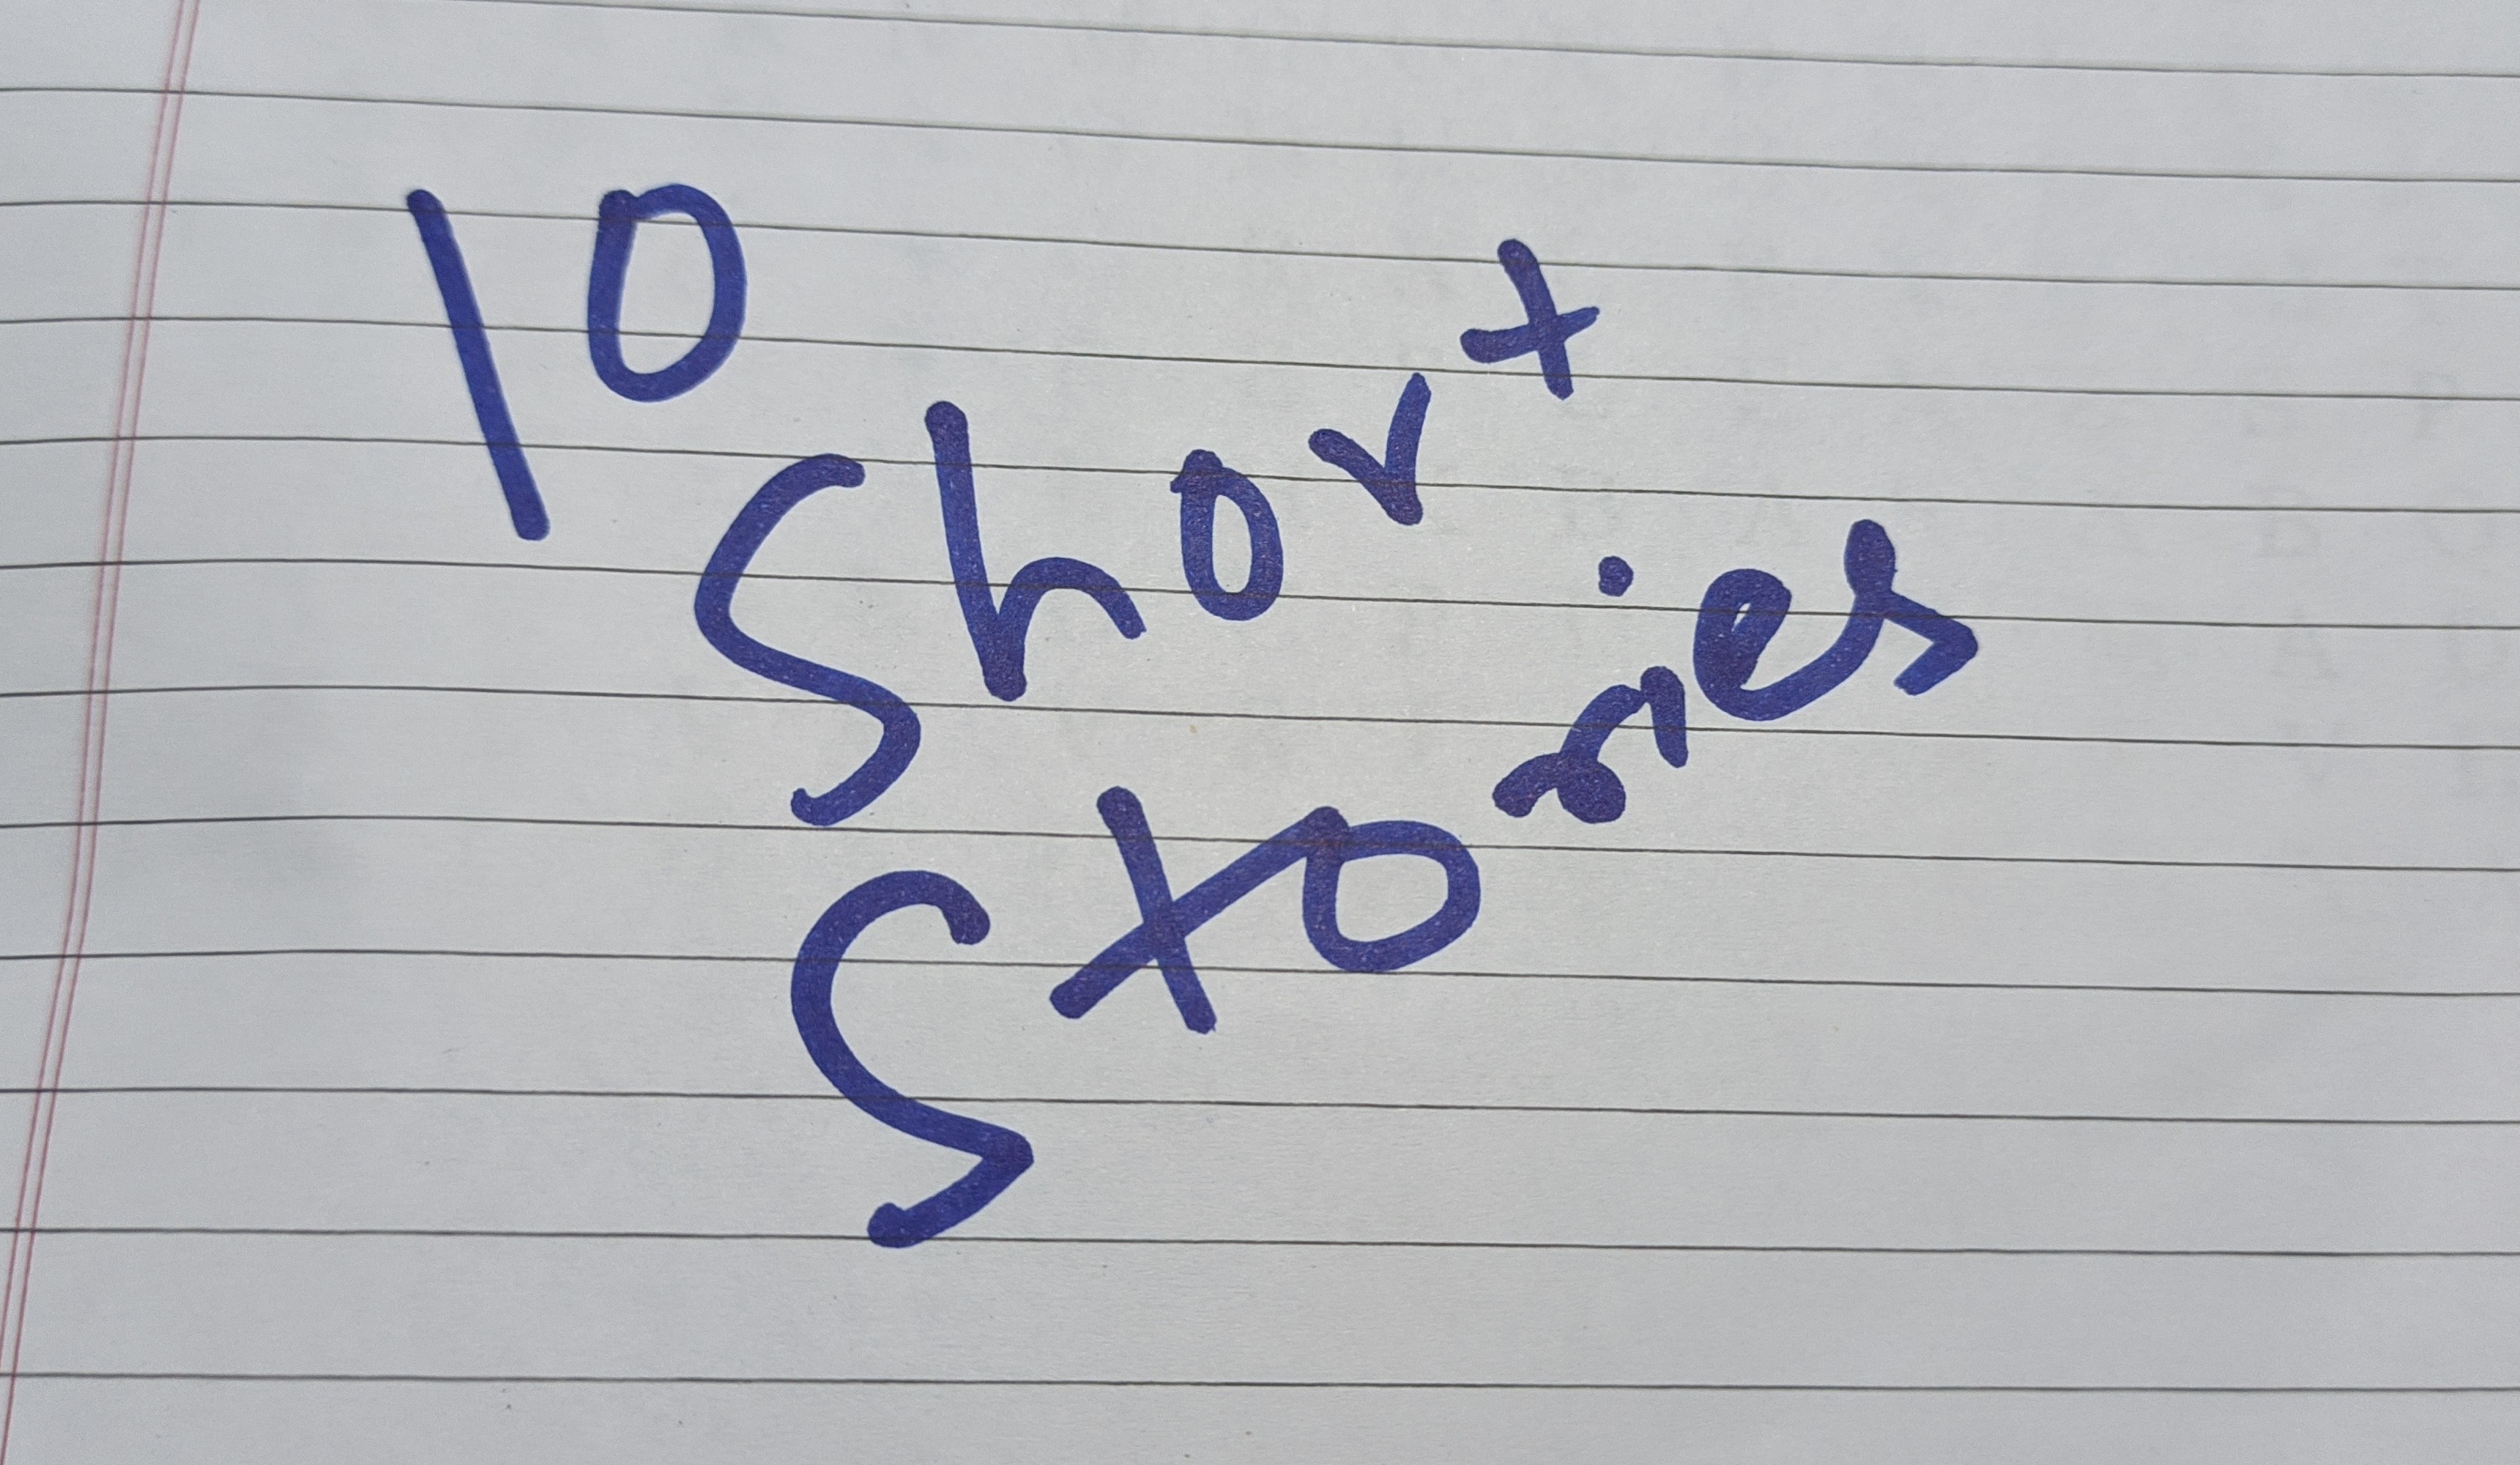 10
Short
Stories